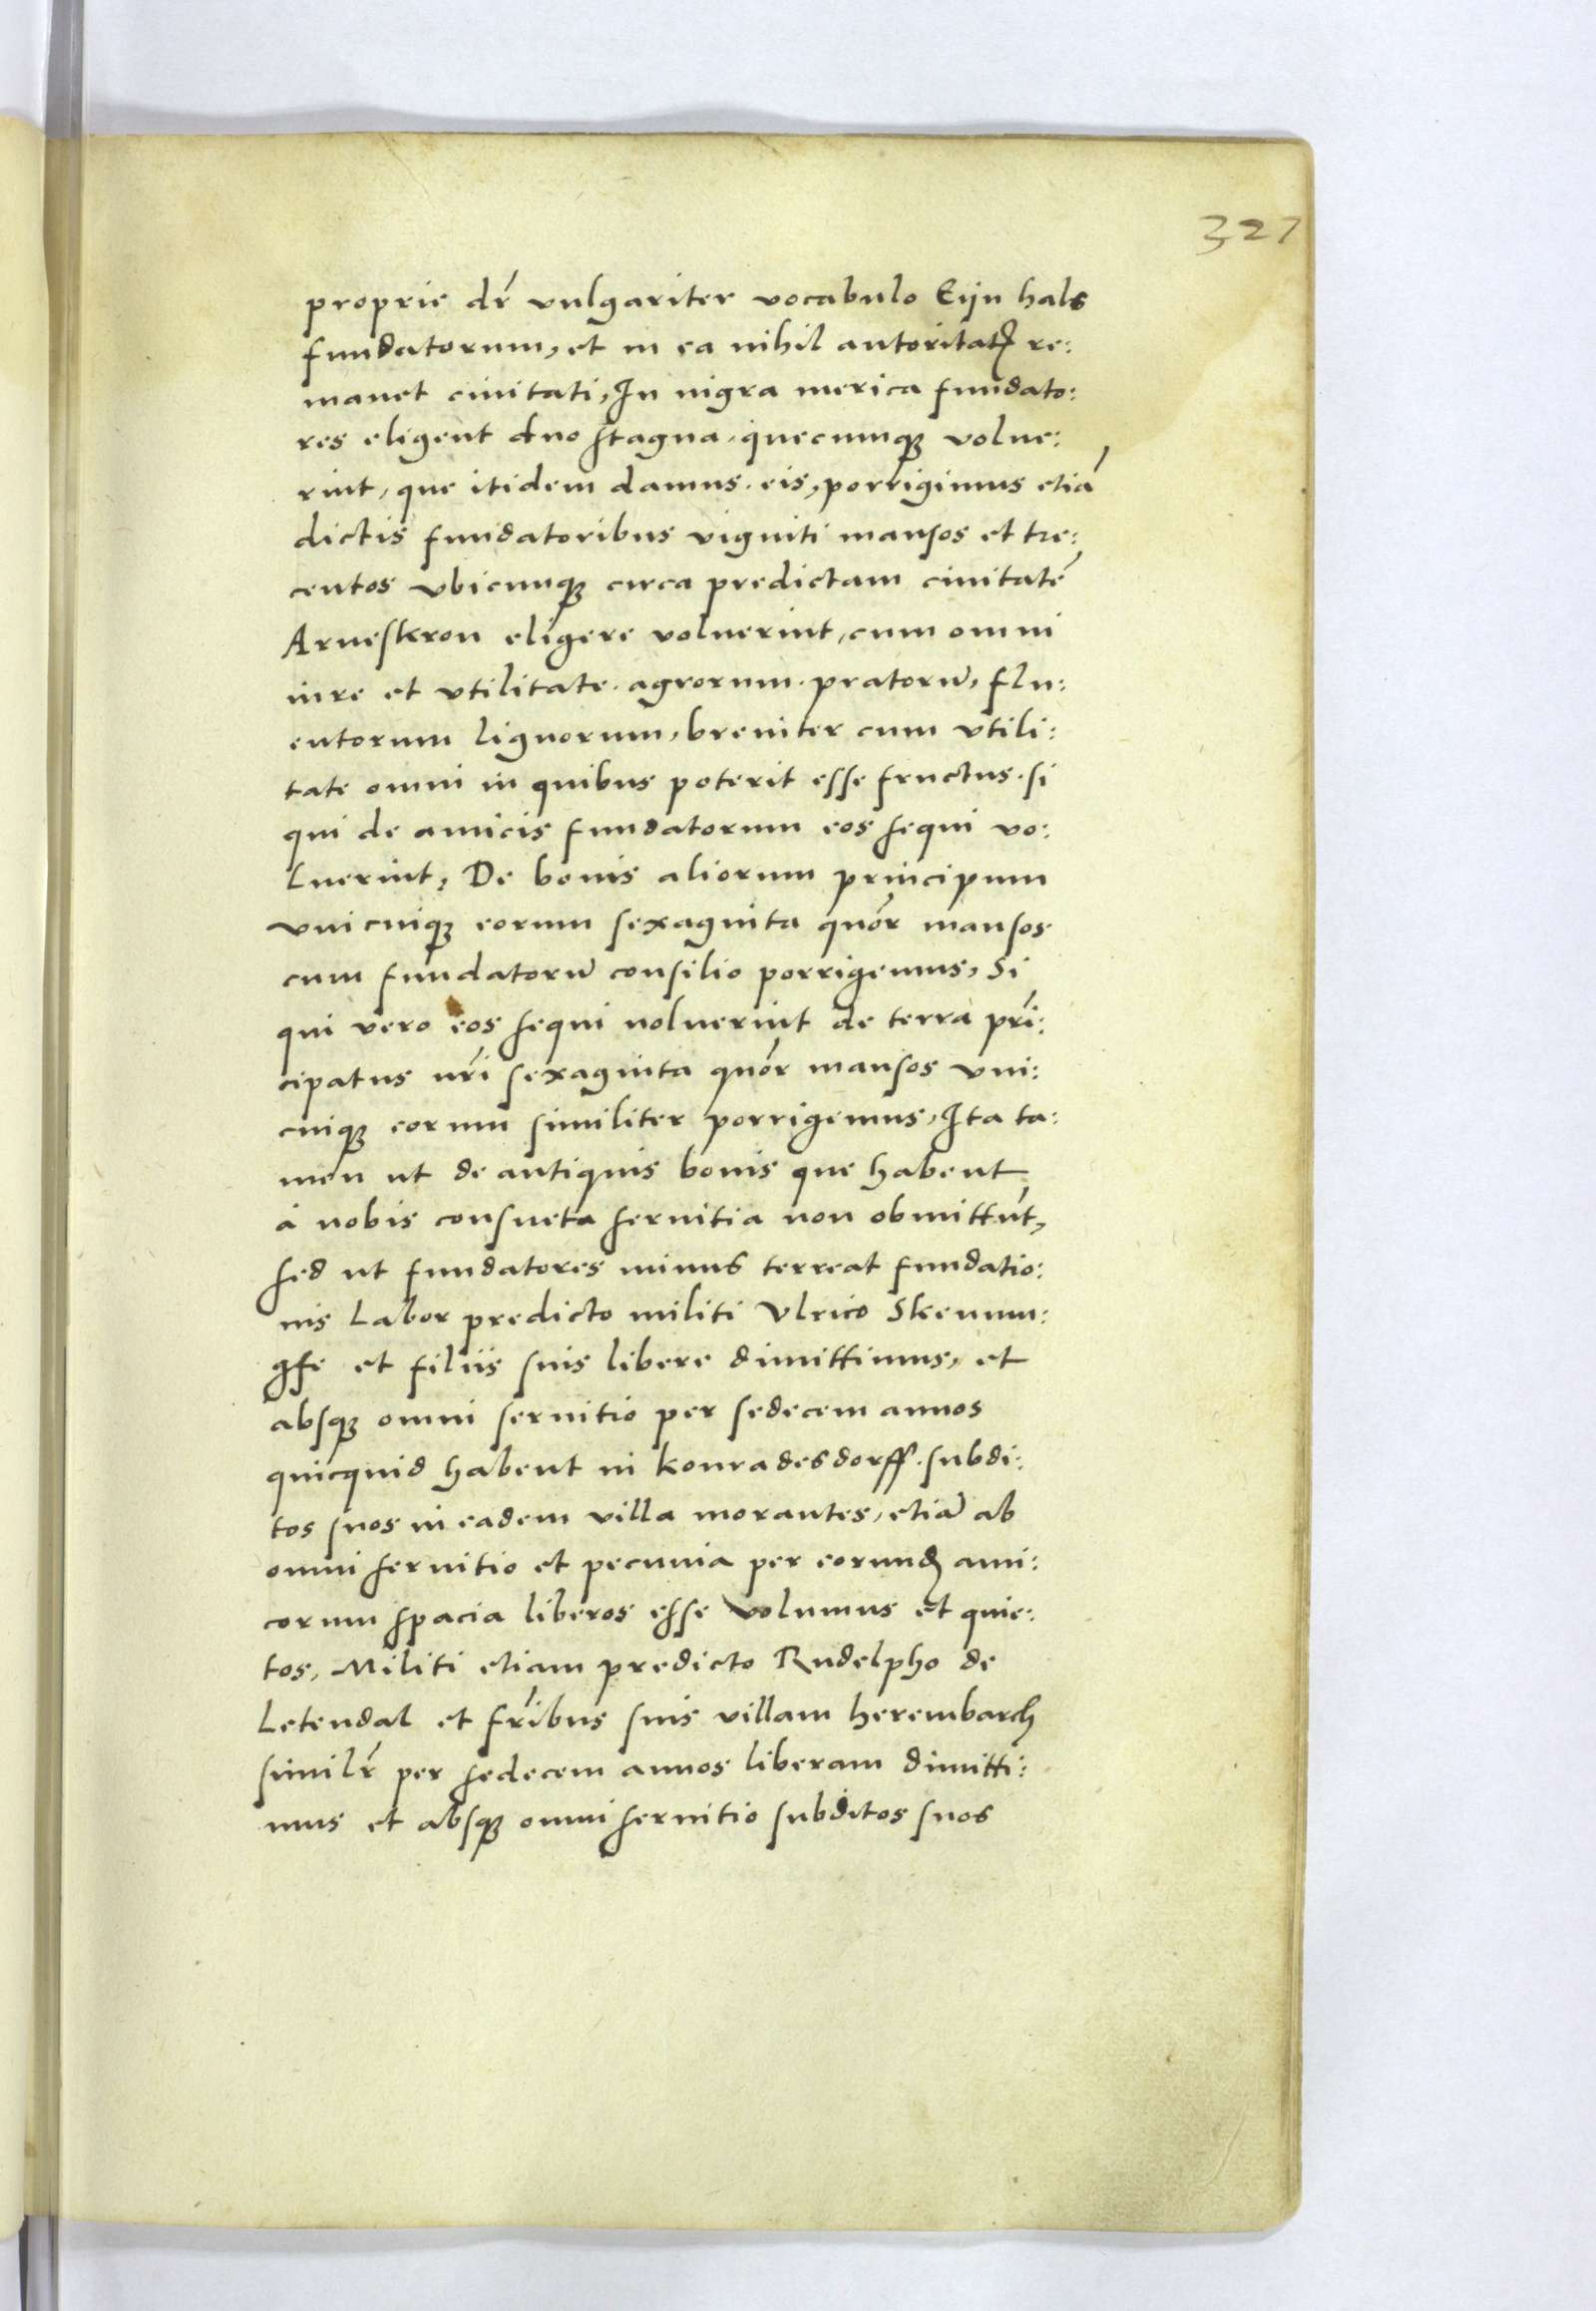 327
proprie dr̃ vulgariter vocabulo Eijn hals
fundatorum, et in ea nihil autoritatꝭ re:
manet ciuitati, In nigra merica fundato:
res eligent duo stagna, quecunqꝫ volue:
rint, que itidem damus eis, porrigimus etiã
dictis fundatoribus viginti mansos et tre:
centos vbicunqꝫ circa predictam ciuitatẽ
Arneskron eligere voluerint, cum omni
iure et vtilitate. agrorum. pratorũ, flu:
entorum lignorum, breuiter cum vtili:
tate omni in quibus poterit esse fructus. si
qui de amicis fundatorum eos sequi vo:
luerint, De bonis aliorum principum
vnicuiqꝫ eorum sexaginta quõr mansos
cum fundatorũ consilio porrigemus, Si
qui vero eos sequi uoluerint de terra prĩ:
cipatus nr̃i sexaginta quõr mansos vni:
cuiqꝫ eorum similiter porrigemus, Ita ta:
men ut de antiquis bonis que habent
à nobis consueta seruitia non obmittũt,
sed ut fundatores minus terreat fundatio:
nis Labor predicto militi Vlrico Skenun:
gfe et filiis suis libere dimittimus, et
absqꝫ omni seruitio per sedecem annos
quicquid habent in Konradesdorff. subdi:
tos suos in eadem villa morantes, etiã ab
omni seruitio et pecunia per eorundꝫ ami:
corum spacia liberos esse volumus et quie:
tos, Militi etiam predicto Rudelpho de
Letendal et fr̃ibus suis villam herembarch
similr̃ per sedecem annos liberam dimitti:
mus et absqꝫ omni seruitio subditos suos